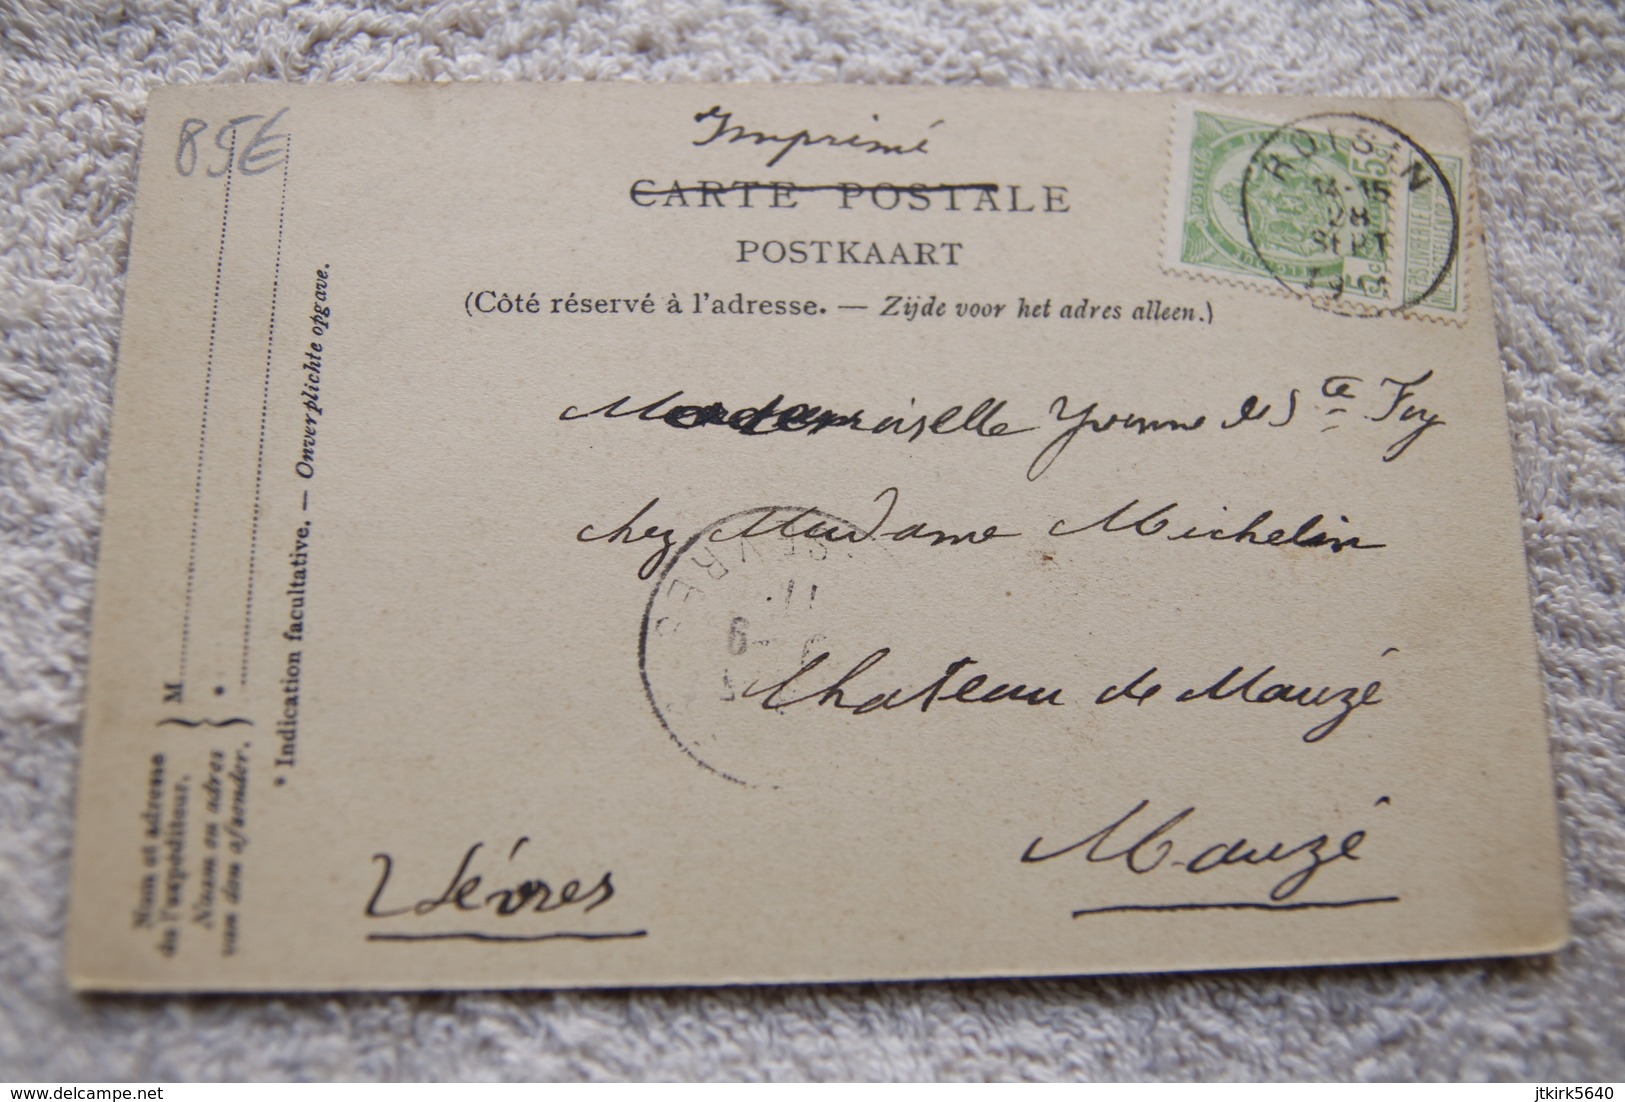 85€
Imprimé
CARTE POSTALE
POSTKAART
(Côté réservé à l'adresse. — Zijde voor het adres alleen.)
ROISIN
14-15
28
SEPT
POSTES
BELGIQUE
5c
Mademoiselle Yvonne de Ste Foy
chez Madame Michelin
Chateau de Mauzé
Mauzé
2 Sévres
SEVRES
* Indication facultative. — Onverplichte opgave.
M
Nom et adresse
de l'expéditeur.
Naam en adres
van den afzender.
delcampe.net
jtkirk5640